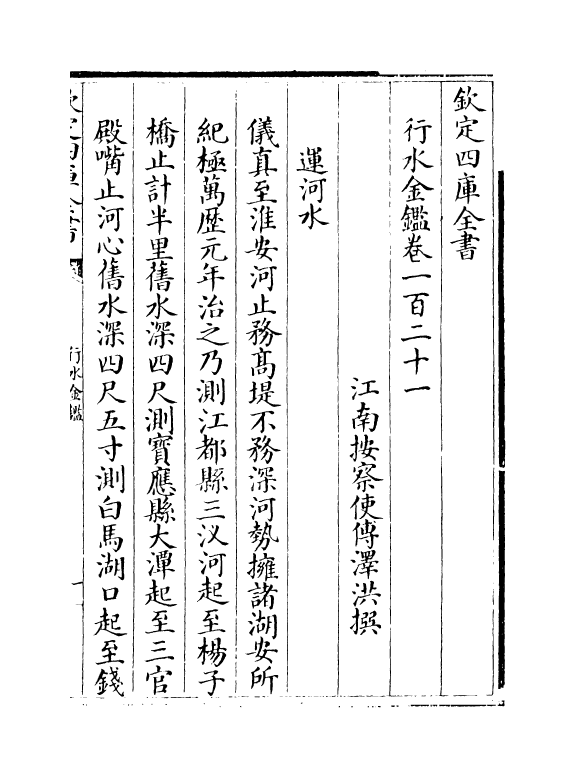 欽定四庫全書
行水金鑑卷一百二十一
江南按察使傅澤洪撰
運河水
儀真至淮安河止務髙堤不務深河勢擁諸湖安所
紀極萬歴元年治之乃測江都縣三汊河起至楊子
橋止計半里舊水深四尺測寶應縣大潭起至三官
殿嘴止河心舊水深四尺五寸測白馬湖口起至錢
行水金鑑